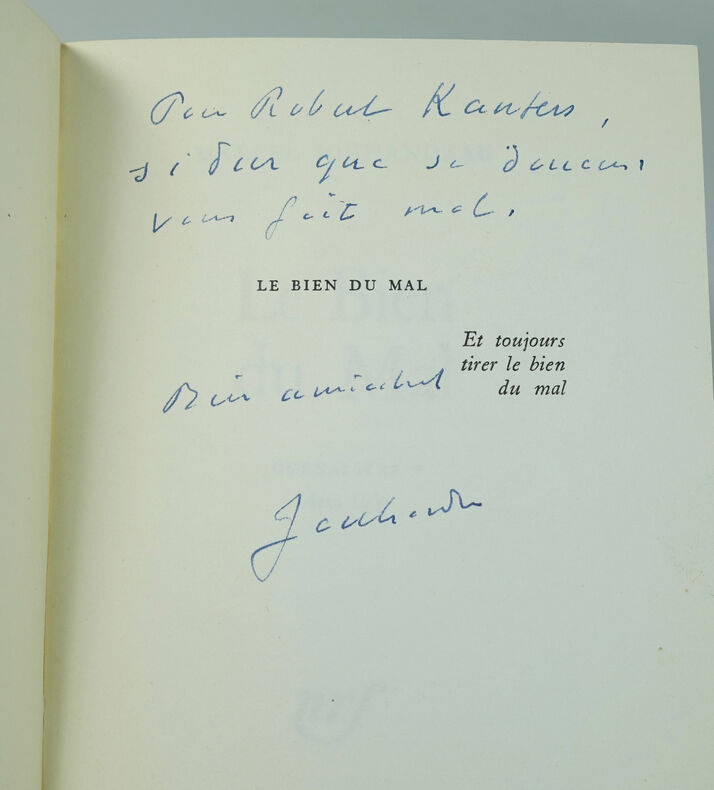 Pour Robert Kanters,
si dur que sa douceur
vous fait mal.
LE BIEN DU MAL
Et toujours
tirer le bien
du mal
Bien
Jouhandeau